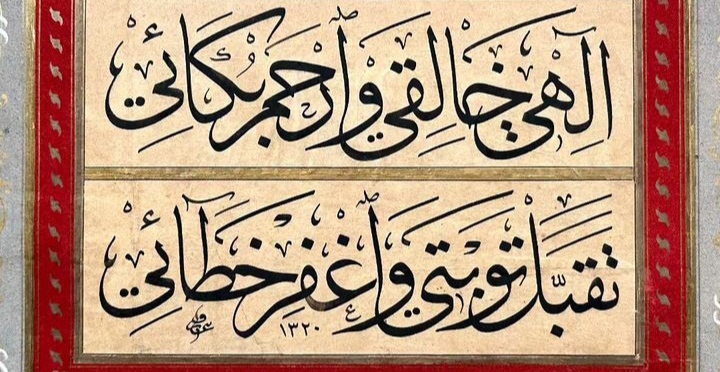 الٓهي خالقي وارحم بكائي
تقبّل توبتي واغفر خطائي
١٣٢٠